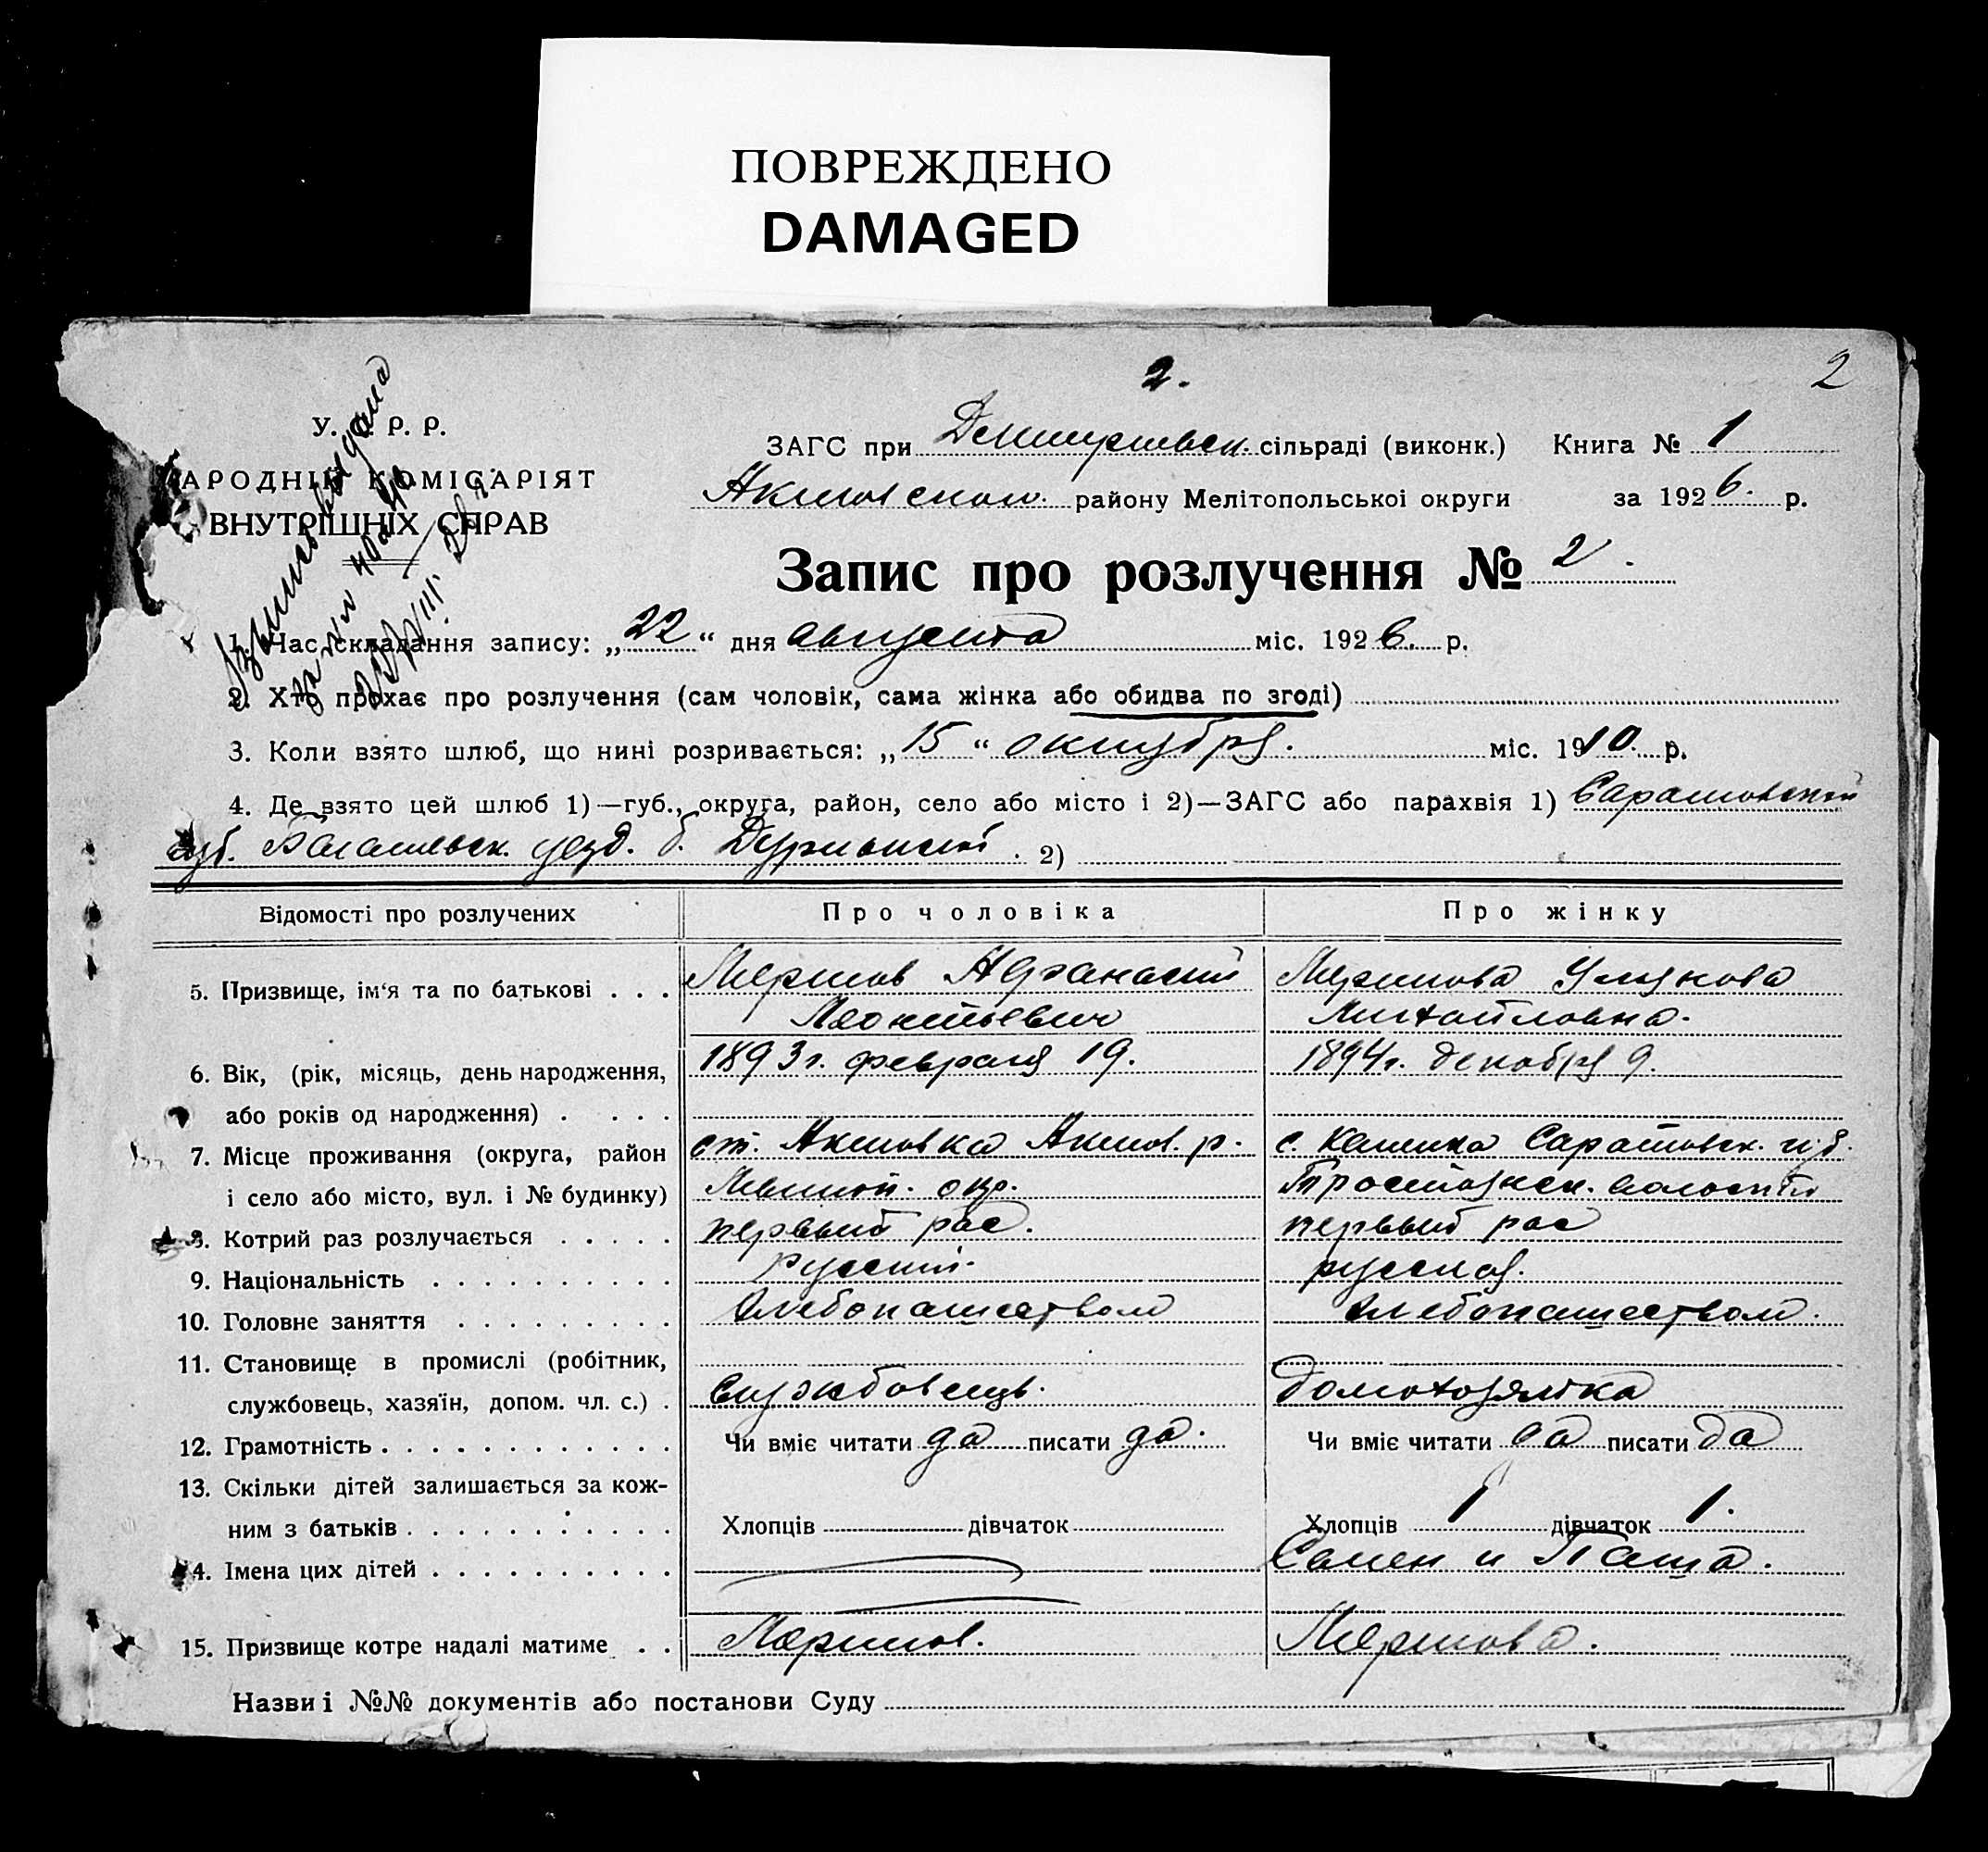 ПОВРЕЖДЕНО
DAMAGED
2.
2
У. Р. Р.
АРОДНІЙ КОМІСАРІЯТ
ВНУТРІШНІХ СПРАВ
ЗАГС при сільраді (виконк.) Книга № 1
Акимовском. району Мелітопольської округи за 1926. р.
Запис про розлучення № 2.
1. Час складання запису: „22“ дня августа міс. 1926. р.
2. Хто прохає про розлучення (сам чоловік, сама жінка або обидва по згоді)
3. Коли взято шлюб, що нині розривається: „15“ октября. міс. 1910. р.
4. Де взято цей шлюб 1)—губ., округа, район, село або місто і 2)—ЗАГС або парахвія 1) Саратовской
губ. Балашевск. уезд. 2)
Відомості про розлучених Про чоловіка Про жінку
5. Призвище, ім'я та по батькові . . . Афанасий
Леонтьевич Михайловна.
6. Вік, (рік, місяць, день народження, 1893 г. февраля 19. 1894 г. декабря 9.
або років од народження) . . . .
7. Місце проживання (округа, район ст. Акимовка Аким. р. с. Саратовск. губ.
і село або місто, вул. і № будинку) окр. волости
8. Котрий раз розлучається . . . . . первый рас. первый рас
9. Національність . . . . . . . . . . русский. русская.
10. Головне заняття . . . . . . . . . хлебопашеством хлебопашеством.
11. Становище в промислі (робітник,
службовець, хазяїн, допом. чл. с.) . Службовець. домохозяйка
12. Грамотність . . . . . . . . . . . . Чи вміє читати да писати да. Чи вміє читати да писати да
13. Скільки дітей залишається за кож-
ним з батьків . . . . . . . . . . . Хлопців дівчаток Хлопців 1 дівчаток 1.
14. Імена цих дітей . . . . . . . . . . Семен и Паша.
15. Призвище котре надалі матиме . .
Назви і №№ документів або постанови Суду